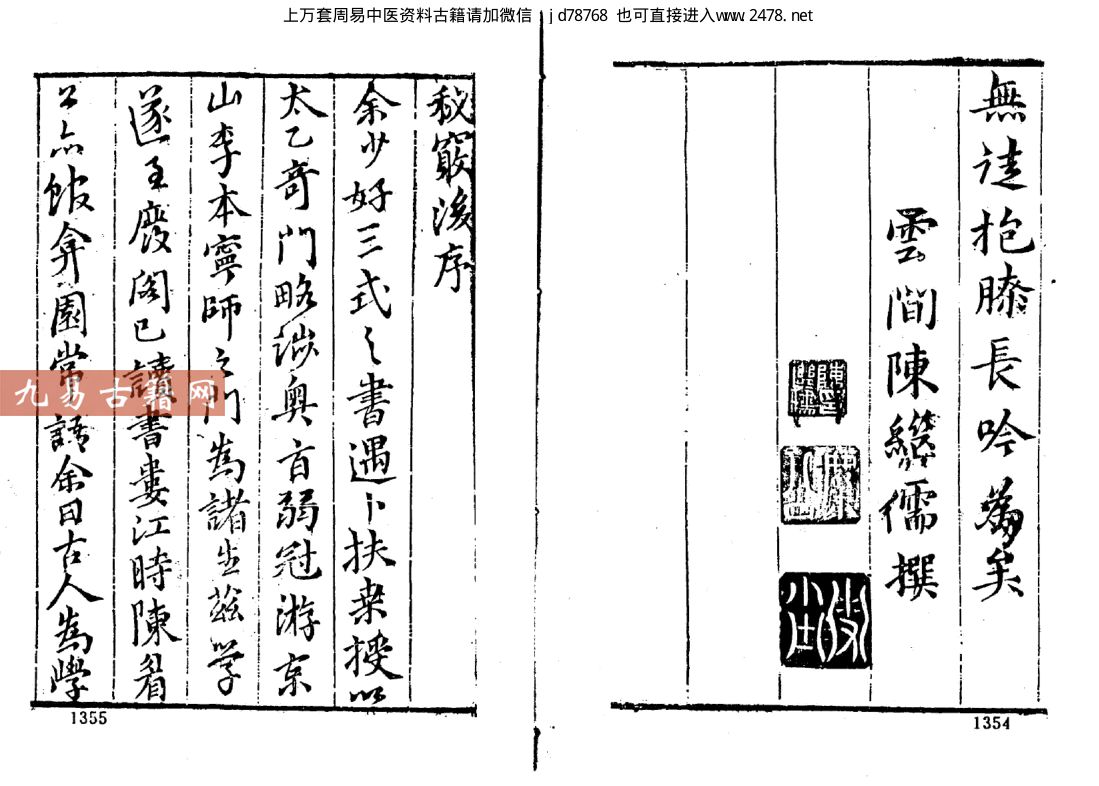 上万套周易中医资料古籍请加微信：jd78768 也可直接进入www.2478.net
無徒抱膝長吟為矣
雲間陳繼儒撰
1354
秘竅後序
余少好三式之書遇卜扶桒授以
太乙奇門略涉奥旨弱冠游京
山李本寧師之門為諸生茲學
遂至廢閣已讀書婁江時陳眉
公亦館弇園常語余曰古人為學
1355
九易古籍网